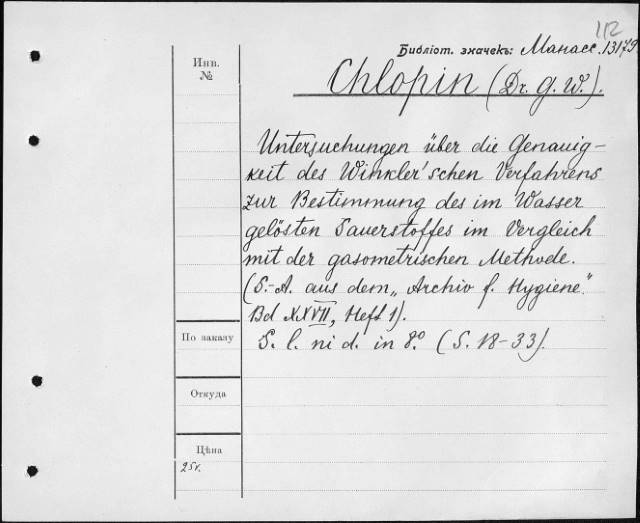 112
Библіот. значекъ: Манасс. 13179
Инв.
№
Chlopin (Dr. G. W.).
Untersuchungen über die Genauig-
keit des Winkler'schen Verfahrens
zur Bestimmung des im Wasser
gelösten Sauerstoffes im Vergleich
mit der gasometrischen Methode.
(S.-A. aus dem „Archiv f. Hygiene."
Bd XXVII, Heft 1).
По заказу
S. l. ni d. in 8.° (S. 18-33).
Откуда
Цѣна
25к.